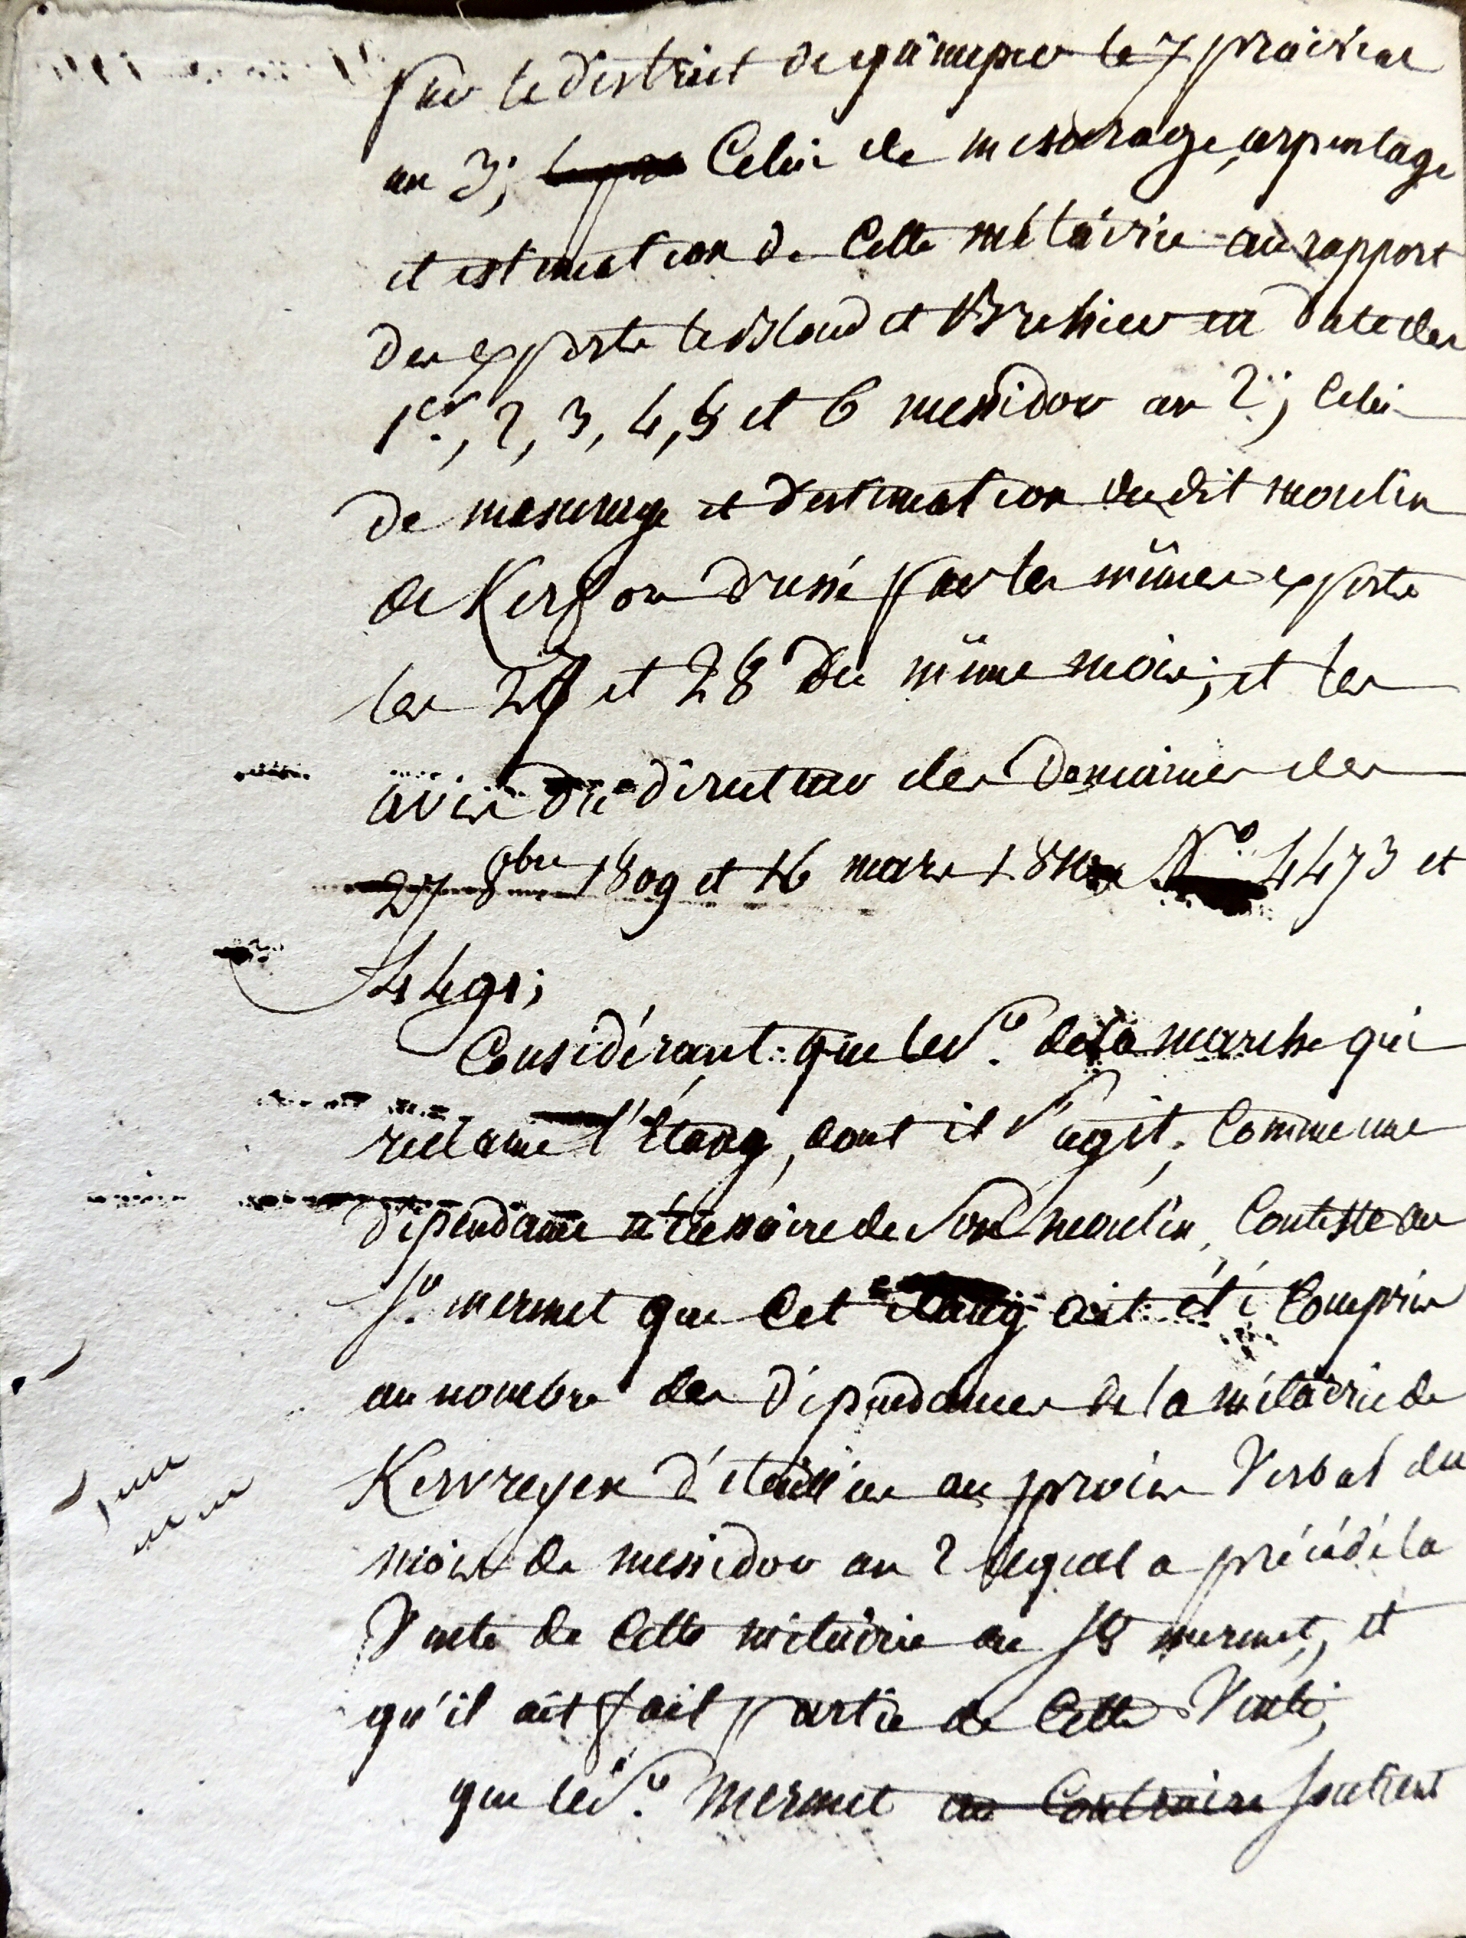 par le district de quimper le 7 prairial
an 3; Celui de mesurage, arpentage
et estimation de Cette métairie au rapport
des experts le Bloud et Brehier en date des
1er., 2, 3, 4, 5 et 6 messidor an 2; Celui
de mesurage et d'estimation du dit moulin
de Kerson dressé par les mêmes experts
les 27 et 28 du même mois; et les
avis du directeur des Domaines des
27 8bre 1809 et 16 mars 1810 No. 4473 et
4491;
Considérant que le Sr. de la marche qui
réclame l'étang, dont il s'agit, Comme une
dépendance nécessaire de son moulin, Conteste au
Sr. mermet que Cet étang ait été Compris
au nombre des dépendances de la métairie de
Kervreyen détaillées au procès Verbal du
mois de messidor an 2 lequel a précédé la
Vente de Cette métairie au Sr mermet, et
qu'il ait fait partie de Cette Vente;
que le Sr. Mermet au Contraire soutient